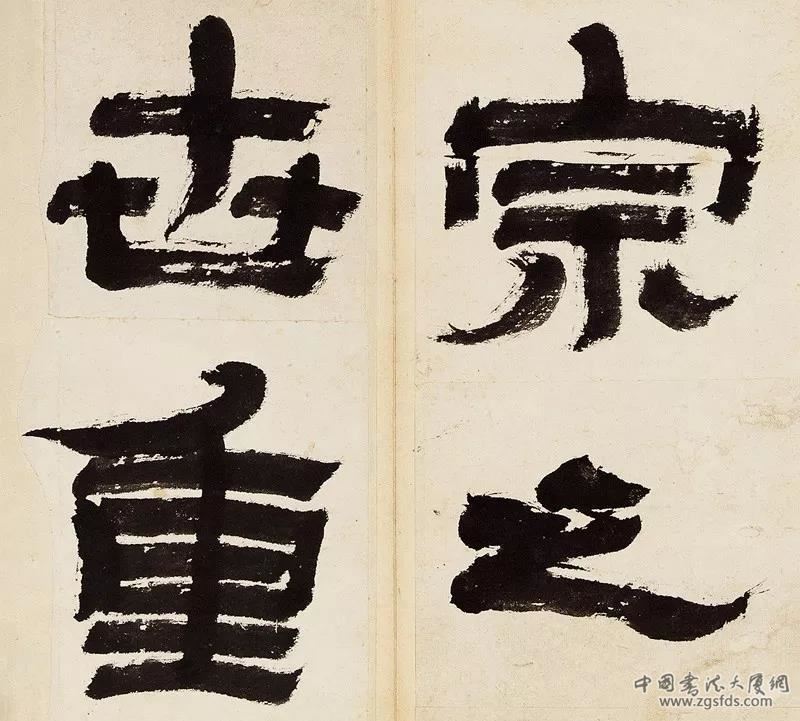 宗之
世重
中国书法大厦網
www.zgsfds.com